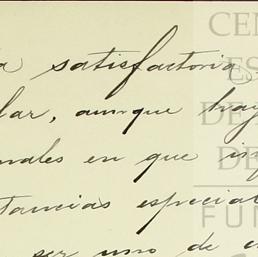 a satisfactoria
lar, aunque hay
nales en que in
tancias especial
ser uno de e
CEN
ES
DE
DE
FUN